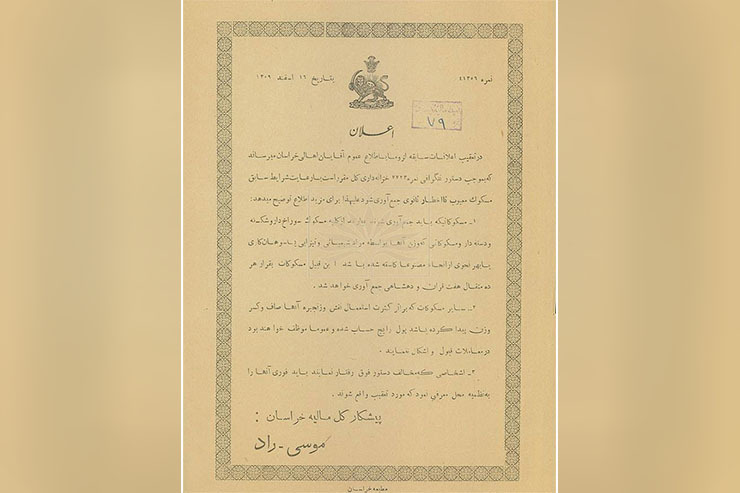 نمره ۴۱۳۵۶
بتاریخ ۱۶ اسفند ۱۳۰۹
۷۹
اعلان
در تعقیب اعلانات سابقه لزوما باطلاع عموم آقایان اهالی خراسان میرساند
که بموجب دستور تلگرافی نمره ۲۷۲۳ خزانه داری کل مقرر است با رعایت شرایط سابق
مسکوک معیوب تا اخطار ثانوی جمع آوری شود علیهذا برای مزید اطلاع توضیح میدهد:
۱ـ مسکوکاتیکه باید جمع آوری شود عبارتند از کلیه مسکوک سوراخ دار و شکسته
و دسته دار و مسکوکاتی که وزن آنها بواسطه مواد شیمیائی و تیزابی یا سوهان کاری
یا بهر نحوی از انحاء مصنوعا کاسته شده باشد این قبیل مسکوکات بقرار هر
ده مثقال هفت قران و دهشاهی جمع آوری خواهد شد .
۲ـ سایر مسکوکات که بر اثر کثرت استعمال نقش و زنجیره آنها صاف و کسر
وزن پیدا کرده باشد پول رایج حساب شده و عموما موظف خواهند بود
در معاملات قبول و اشکال ننمایند .
۳ـ اشخاصی که مخالف دستور فوق رفتار نمایند باید فوری آنها را
به نظمیه محل معرفی نمود که مورد تعقیب واقع شوند .
پیشکار کل مالیه خراسان :
موسی ـ راد
مطبعه خراسان